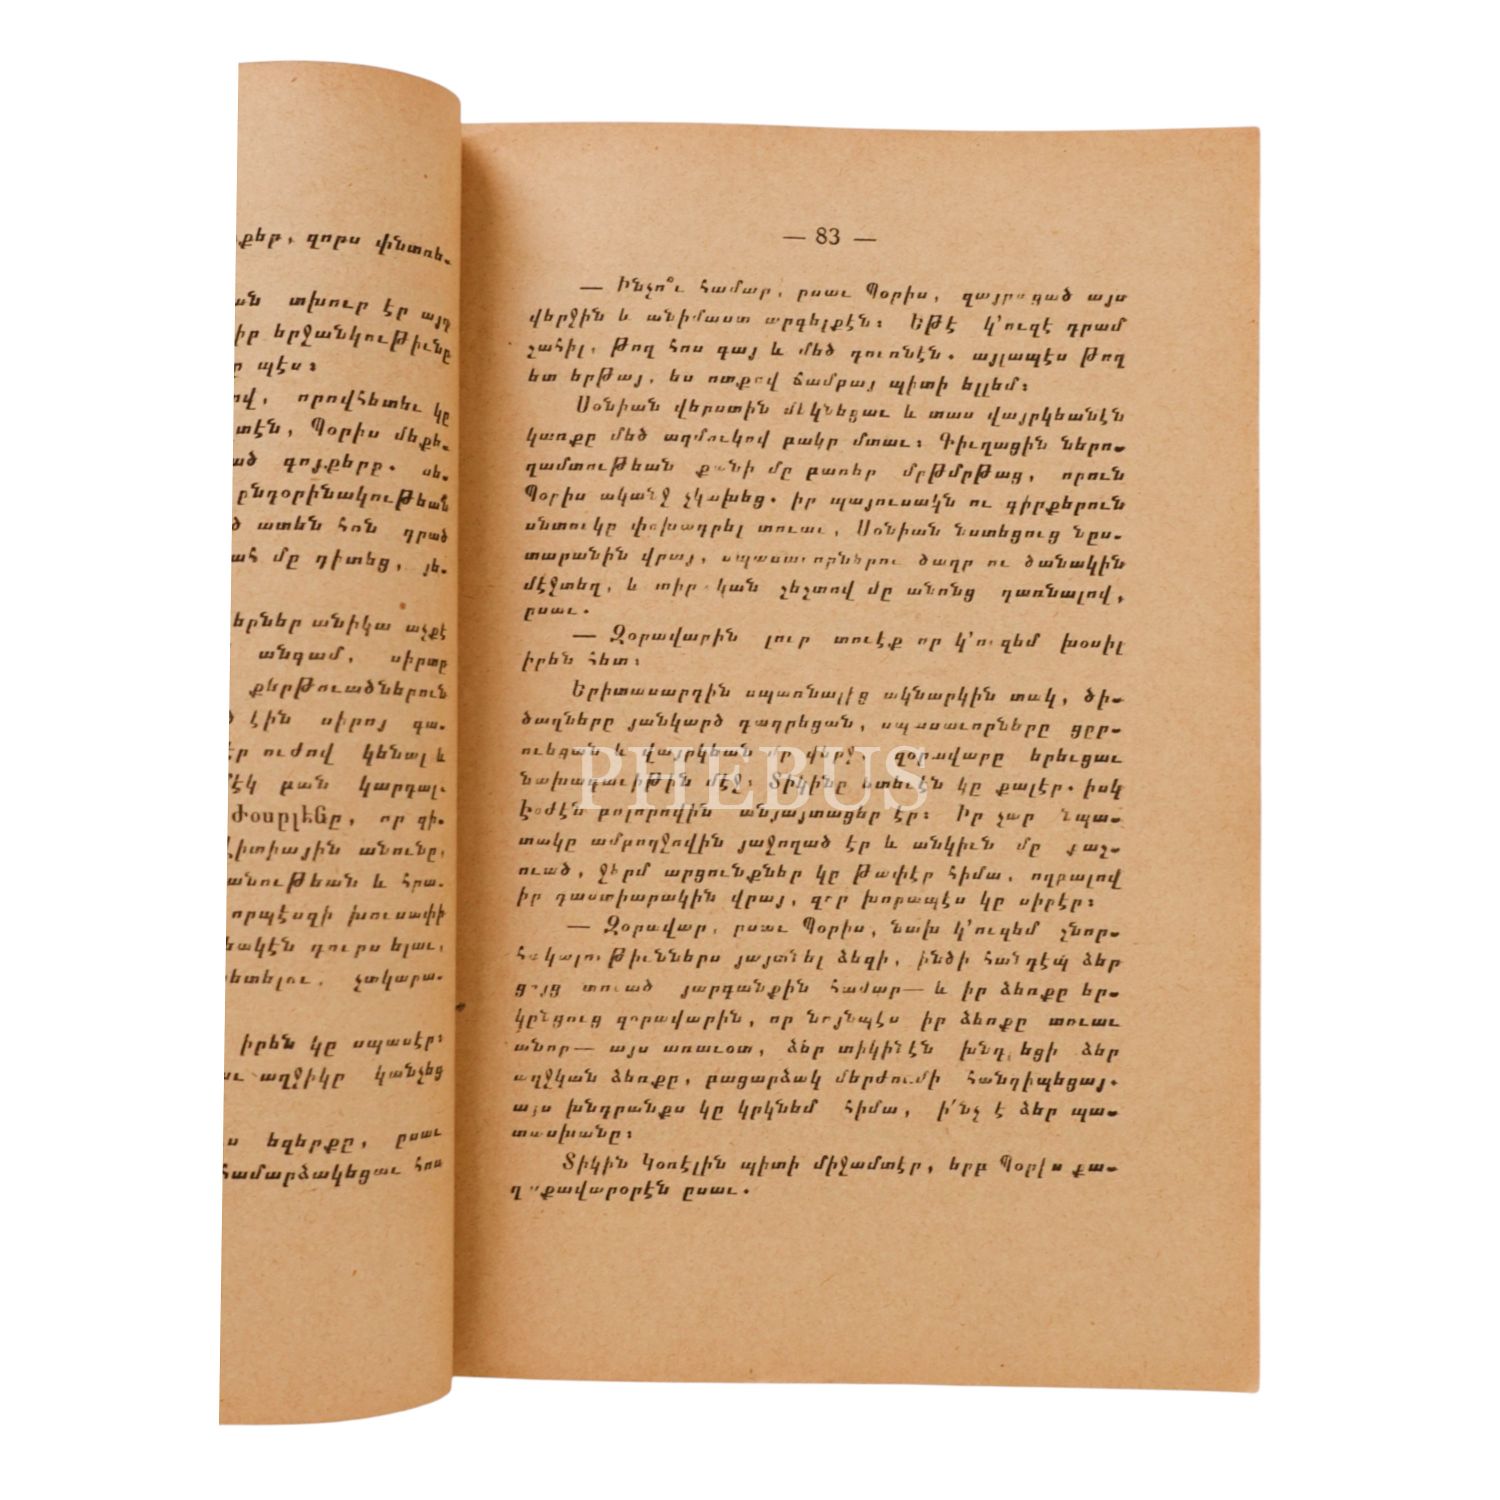 քեր, զորս փնտռե-
տխուր էր այդ
իր երջանկութիւնը
պէս։
որովհետեւ կը
Պօրիս մեքե-
գոյքերը. սե-
ընդօրինակութեան
ատեն հոն դրած
մը դիտեց, յե-
անիկա աչքէ
անգամ, սիրտը
քերթուածներուն
էին սիրոյ գա-
ուժով կենալ և
բան կարդալ.
Ժօսըլենը, որ գի-
անունը,
և հրա-
որպէսզի խուսափի
դուրս ելաւ,
չտկարա-
իրեն կը սպասէր։
աղջիկը կանչեց
եզերքը, ըսաւ
համարձակեցաւ հոս
— 83 —
— Ինչո՞ւ համար, ըսաւ Պօրիս, զայրացած այս
վերջին և անիմաստ արգելքէն։ Եթէ կ՚ուզէ դրամ
շահիլ, թող հոս գայ և մեծ դռնէն. այլապէս թող
ետ երթայ, ես ոտքով ճամբայ պիտի ելլեմ։
Սօնիան վերստին մէկնեցաւ և տաս վայրկեանէն
կառքը մեծ աղմուկով բակը մտաւ։ Գիւղացին ներո-
ղամտութեան քանի մը բառեր մրթմրթաց, որուն
Պօրիս ականջ չկախեց. իր պայուսակն ու գիրքերուն
սնտուկը փոխադրել տուաւ, Սօնիան նստեցուց նըս-
տարանին վրայ, սպասաւորներու ծաղր ու ծանակին
մէջտեղ, և տիրական շեշտով մը անոնց դառնալով,
ըսաւ.
— Զօրավարին լուր տուէք որ կ՚ուզեմ խօսիլ
իրեն հետ։
Երիտասարդին սպառնալից ակնարկին տակ, ծի-
ծաղները յանկարծ դադրեցան, սպասաւորները ցըր-
ուեցան և վայրկեան մը վերջ, զօրավարը երեւցաւ
նախագաւիթին մէջ։ Տիկինը ետեւէն կը քալէր. իսկ
Էօժէն բոլորովին անյայտացեր էր։ Իր չար նպա-
տակը ամբողջովին յաջողած էր և անկիւն մը քաշ-
ուած, ջերմ արցունքներ կը թափէր հիմա, ողբալով
իր դաստիարակին վրայ, զոր խորապէս կը սիրէր։
— Զօրավար, ըսաւ Պօրիս, նախ կ՚ուզեմ շնոր-
հակալութիւններս յայտնել ձեզի, ինծի հանդէպ ձեր
ցոյց տուած յարգանքին համար— և իր ձեռքը եր-
կընցուց զօրավարին, որ նոյնպէս իր ձեռքը տուաւ
անոր— այս առաւօտ, ձեր տիկինէն խնդրեցի ձեր
աղջկան ձեռքը, բացարձակ մերժումի հանդիպեցայ.
այս խնդրանքս կը կրկնեմ հիմա, ի՛նչ է ձեր պա-
տասխանը։
Տիկին Կօռէլին պիտի միջամտէր, երբ Պօրիս քա-
ղաքավարօրէն ըսաւ.